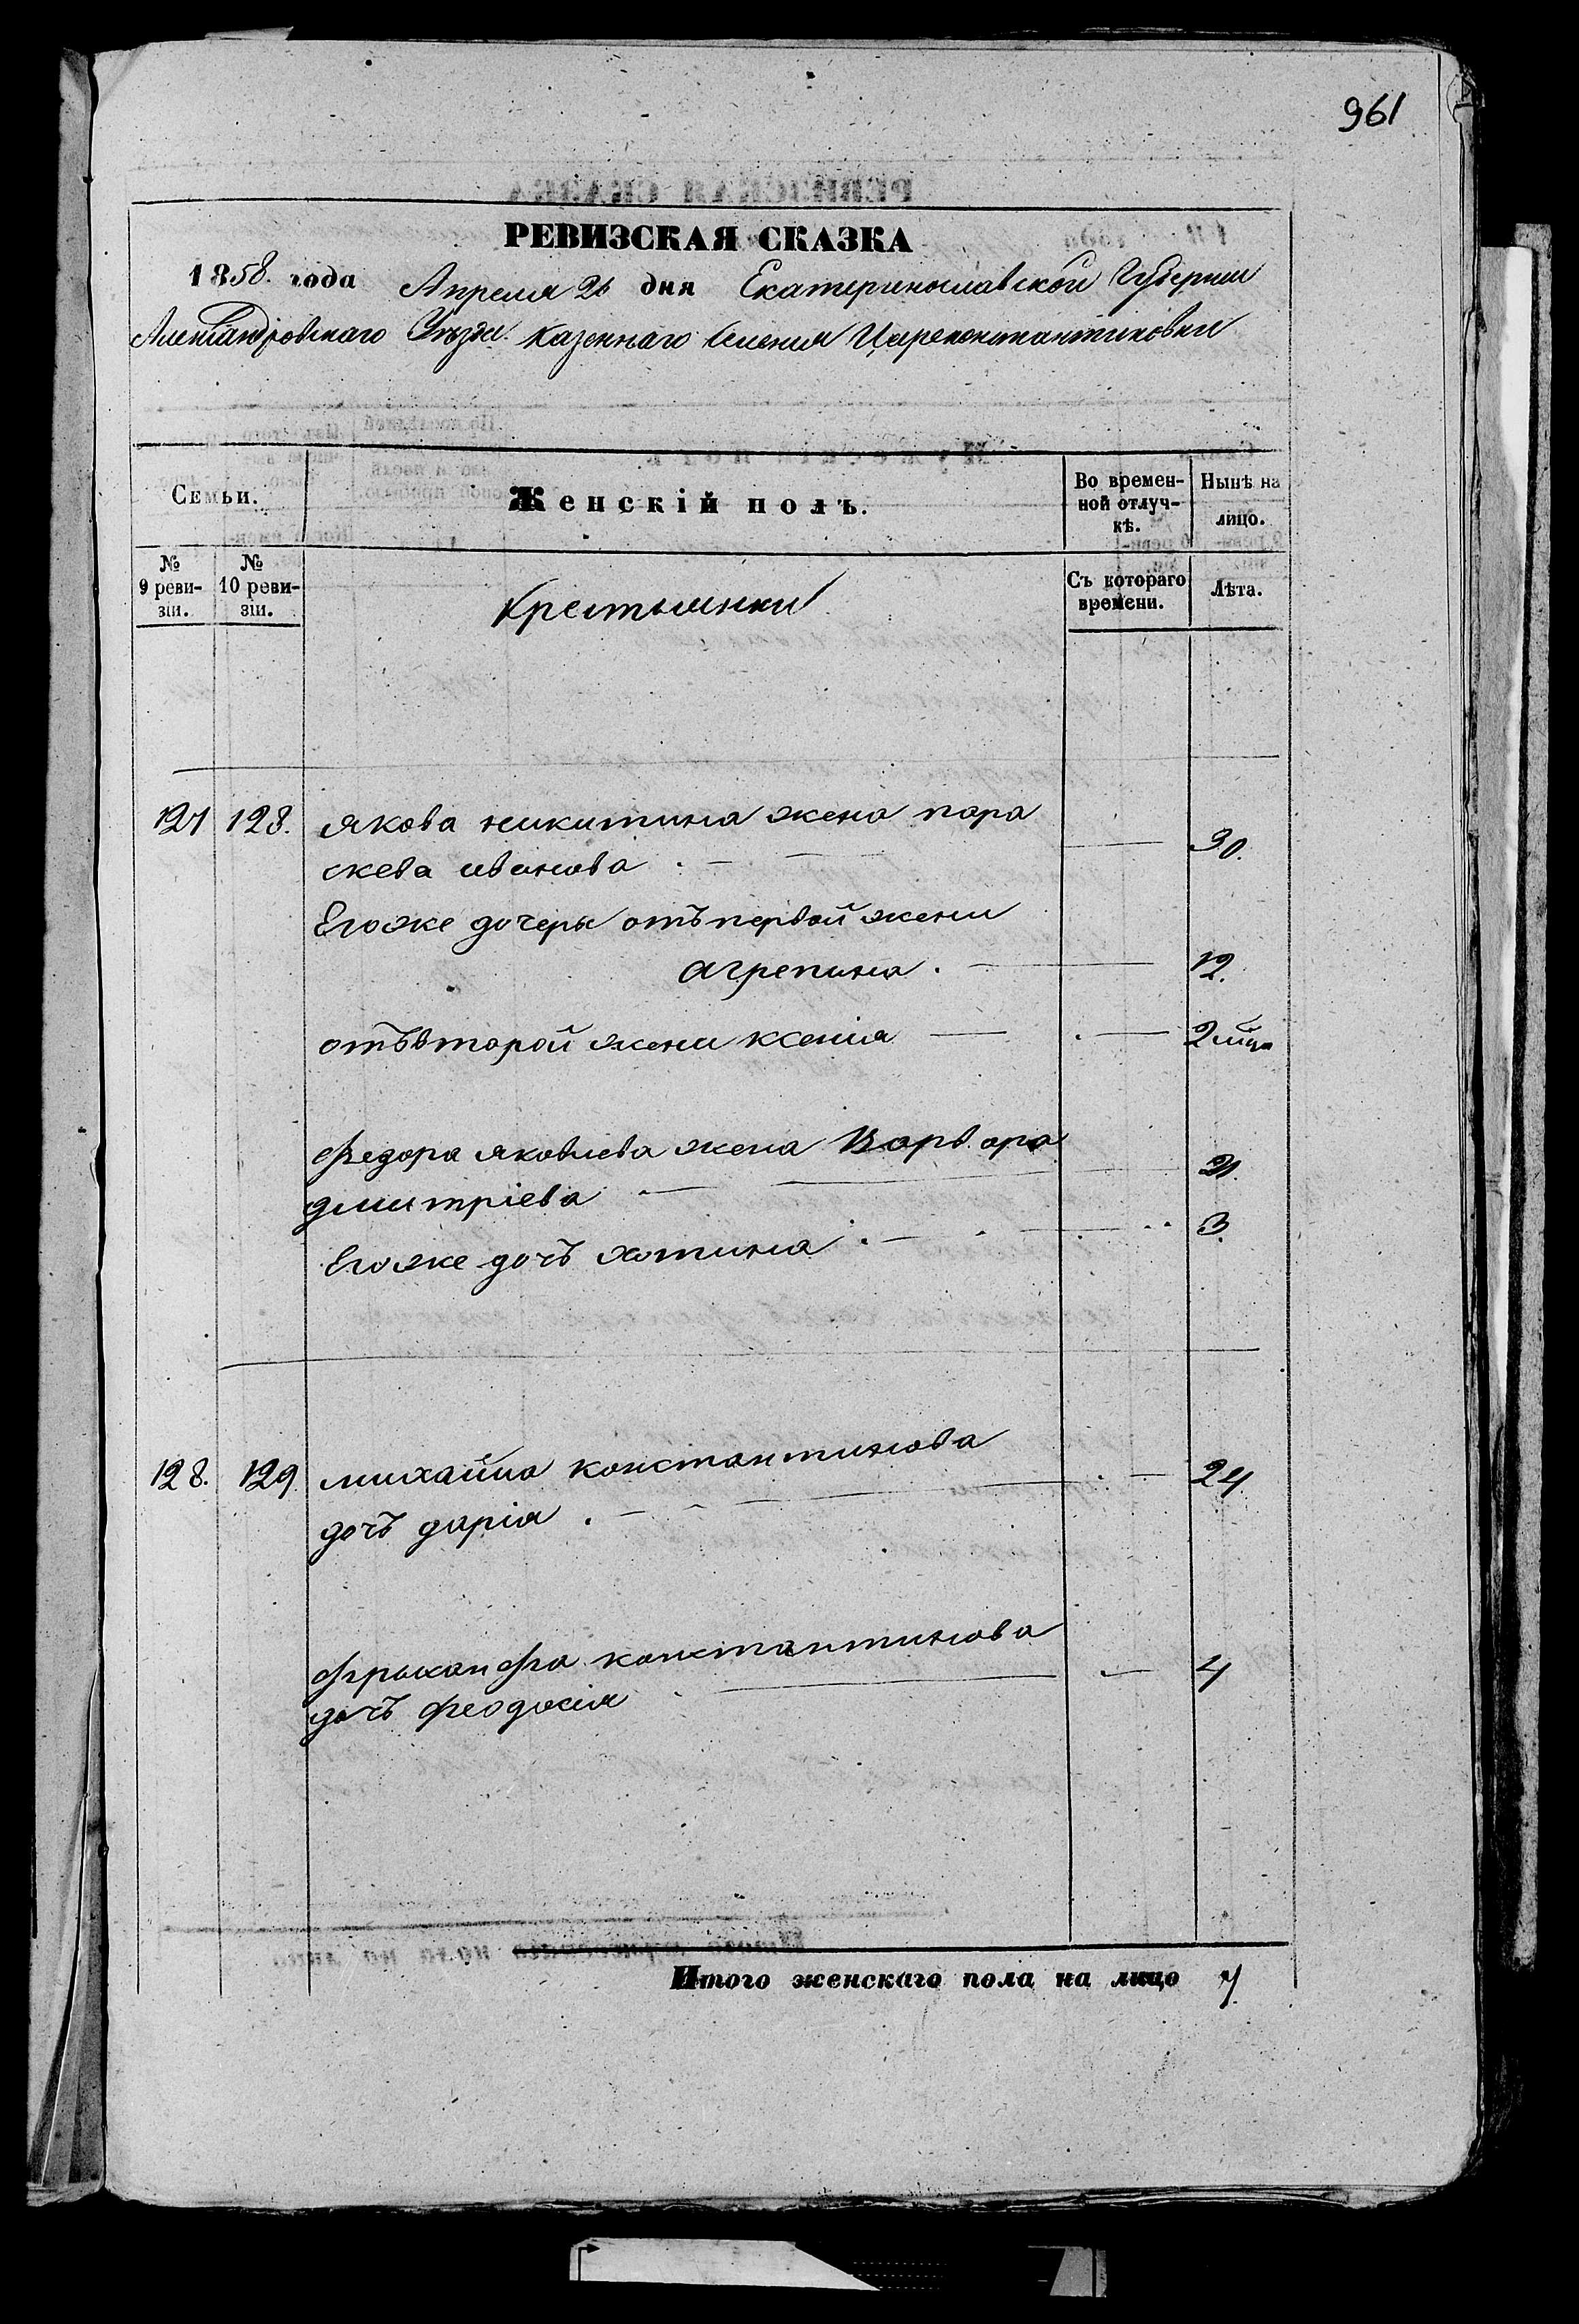 961
РЕВИЗСКАЯ СКАЗКА
1858. года Апреля 26 дня Екатеринославской Губернии
Александровскаго Уезда. Казеннаго селения Цареконстантиновки
Семьи.
Женскій полъ.
Во времен-
ной отлуч-
кѣ.
Нынѣ на
лицо.
№
9 реви-
зіи.
№
10 реви-
зіи.
Крестьянки
Съ котораго
времени.
Лѣта.
127 128. якова никитина жена пара
скева иванова 30.
Егоже дочеры отъ первой жени
агрепина. 12.
отъ второй жени ксенія 2
федора яковлева жена Варвара
дмитріева 21.
Егоже дочъ хотина 3.
128. 129. михайла константинова
дочъ дарія. 24
константинова
дочъ феодосія 4
Итого женскаго пола на лицо 7.